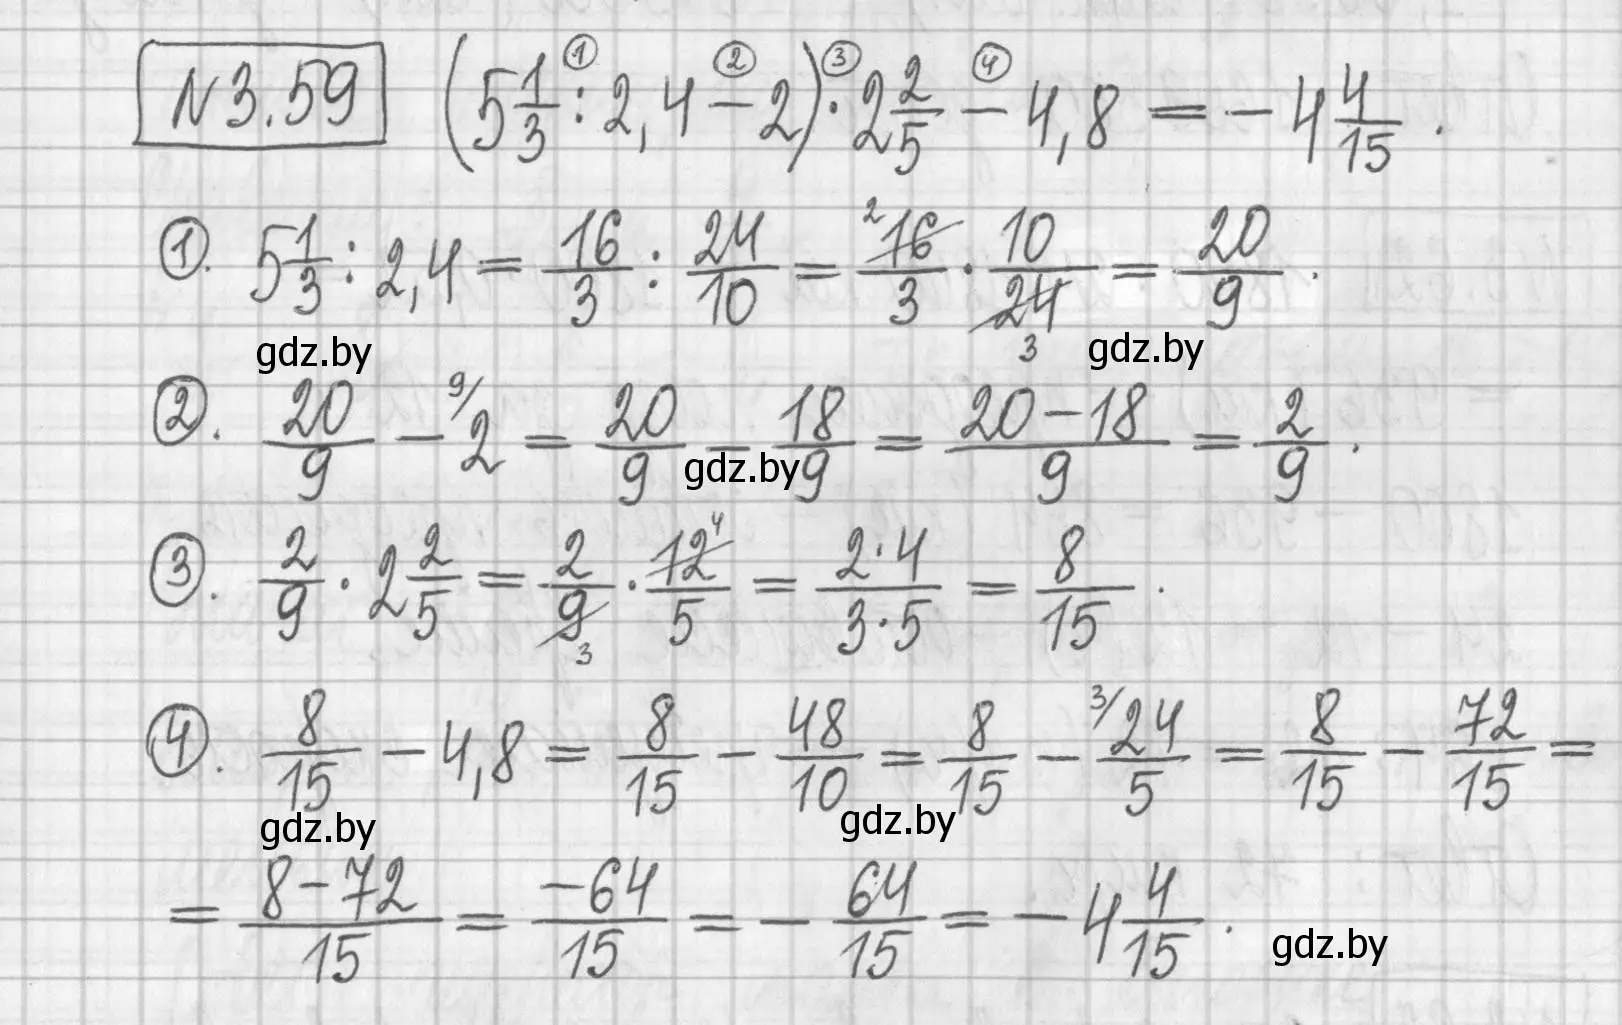 N3.59 (5 1/3 : 2,4 − 2) · 2 2/5 − 4,8 = − 4 4/15.
① ② ③ ④
①. 5 1/3 : 2,4 = 16/3 : 24/10 = 16/3 · 10/24 = 20/9.
2 3
gdz.by gdz.by
②. 20/9 − 9/ 2 = 20/9 − 18/9 = (20 − 18)/9 = 2/9.
gdz.by
③. 2/9 · 2 2/5 = 2/9 · 12/5 = (2·4)/(3·5) = 8/15.
4 3
④. 8/15 − 4,8 = 8/15 − 48/10 = 8/15 − 3/ 24/5 = 8/15 − 72/15 =
gdz.by gdz.by
= (8 − 72)/15 = −64/15 = − 64/15 = − 4 4/15.
gdz.by